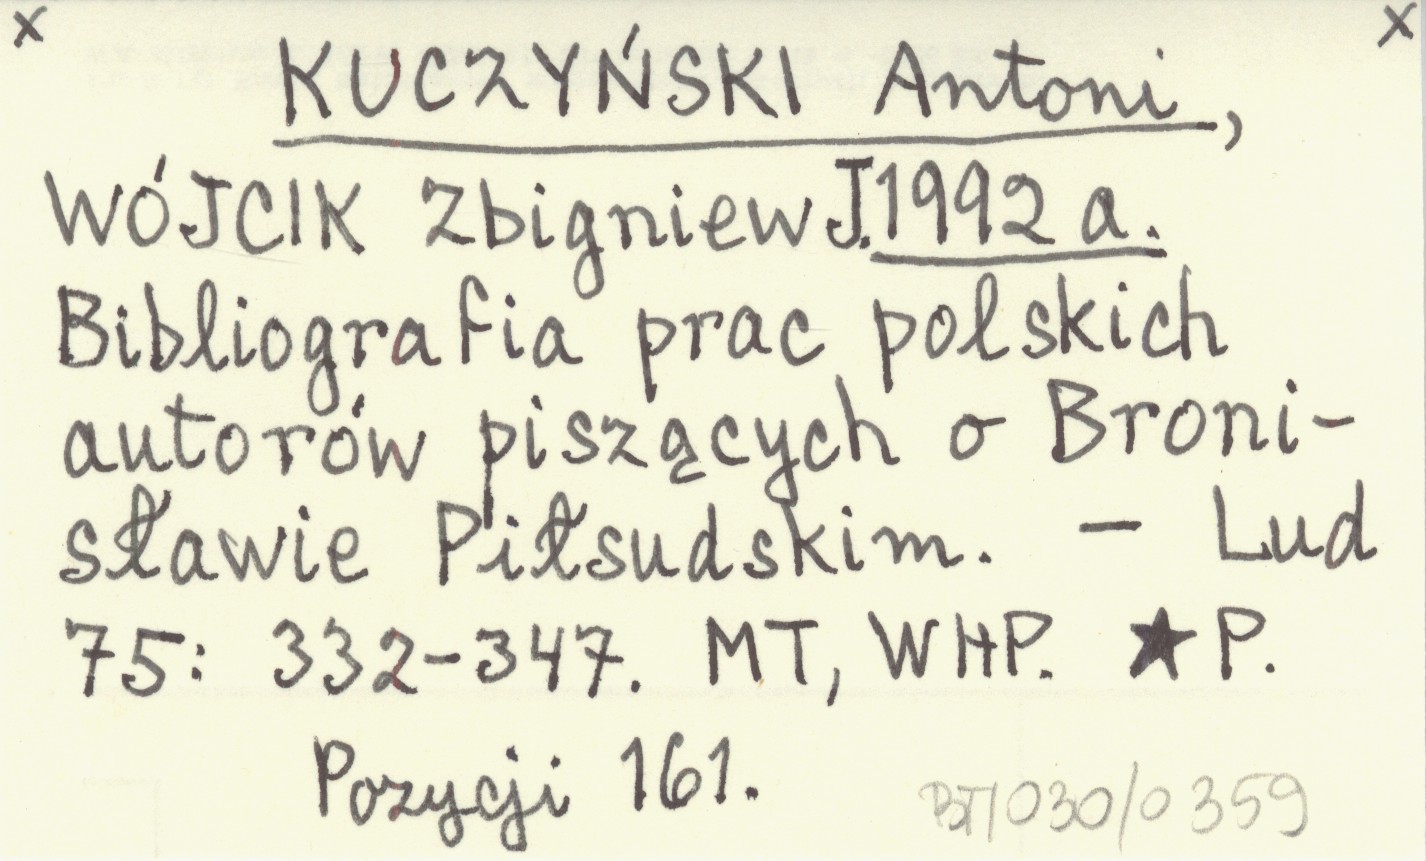 x x
KUCZYŃSKI Antoni,
WÓJCIK Zbigniew J. 1992 a.
Bibliografia prac polskich
autorów piszących o Broni-
sławie Piłsudskim. — Lud
75: 332-347. MT, WHP. ★ P.
Pozycji 161.
BП/030/0359